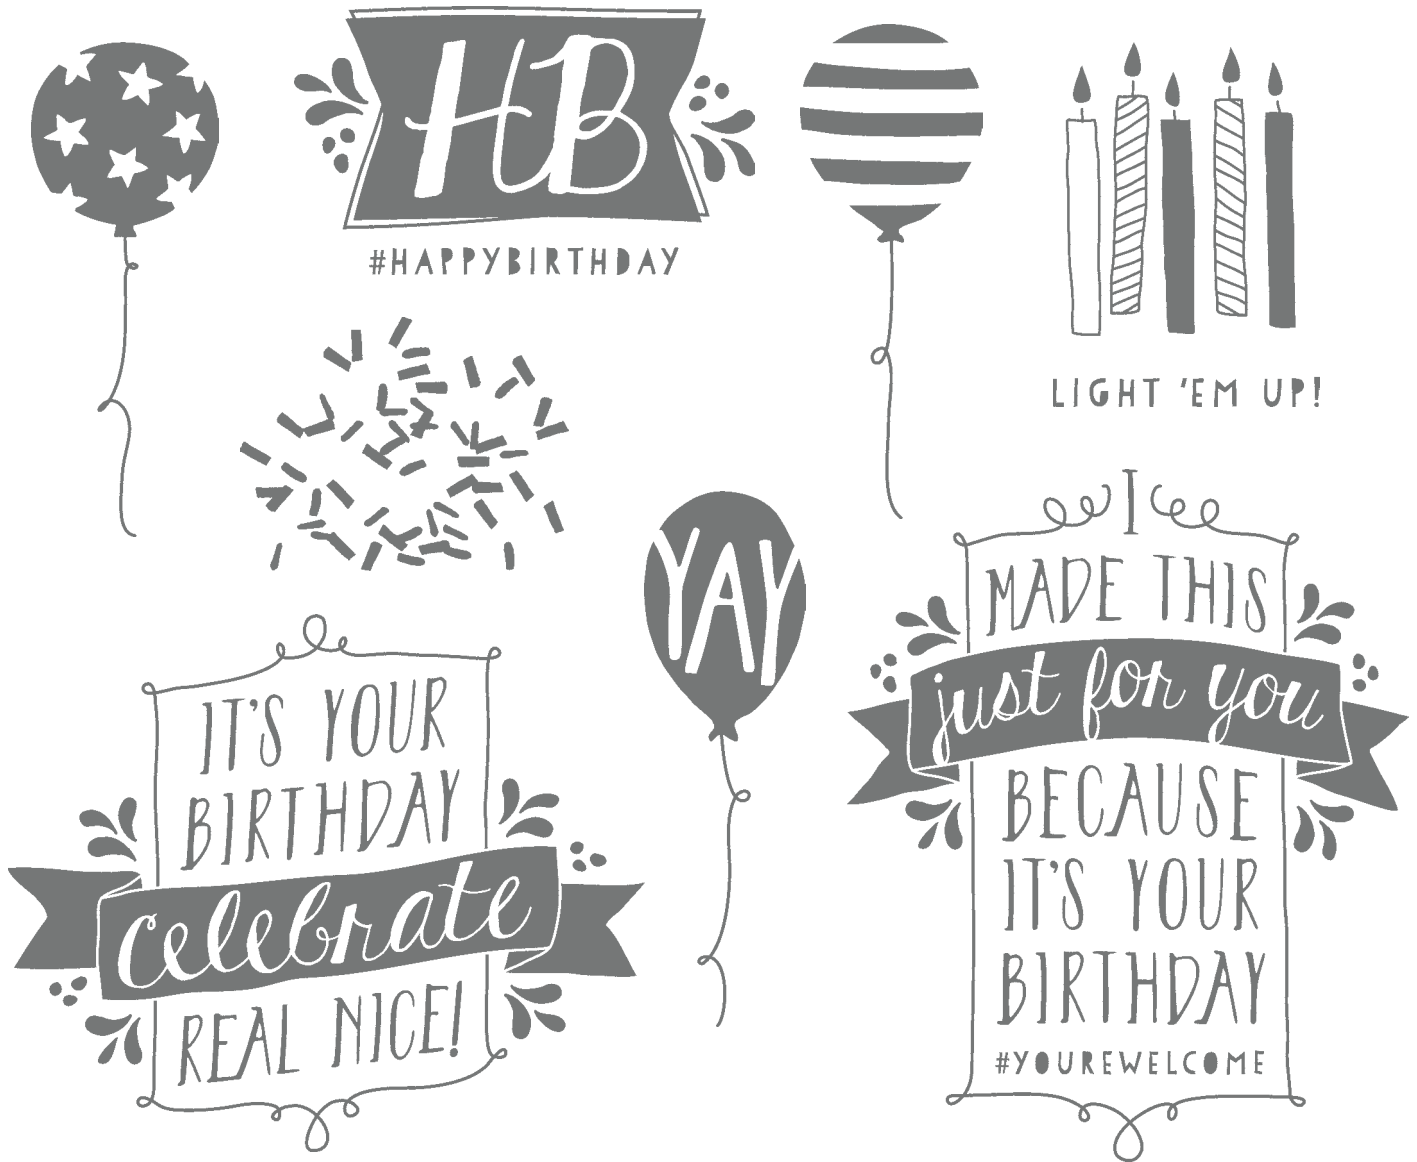 HB
#HAPPYBIRTHDAY
LIGHT 'EM UP!
YAY
IT'S YOUR
BIRTHDAY
celebrate
REAL NICE!
I
MADE THIS
just for you
BECAUSE
IT'S YOUR
BIRTHDAY
#YOUREWELCOME